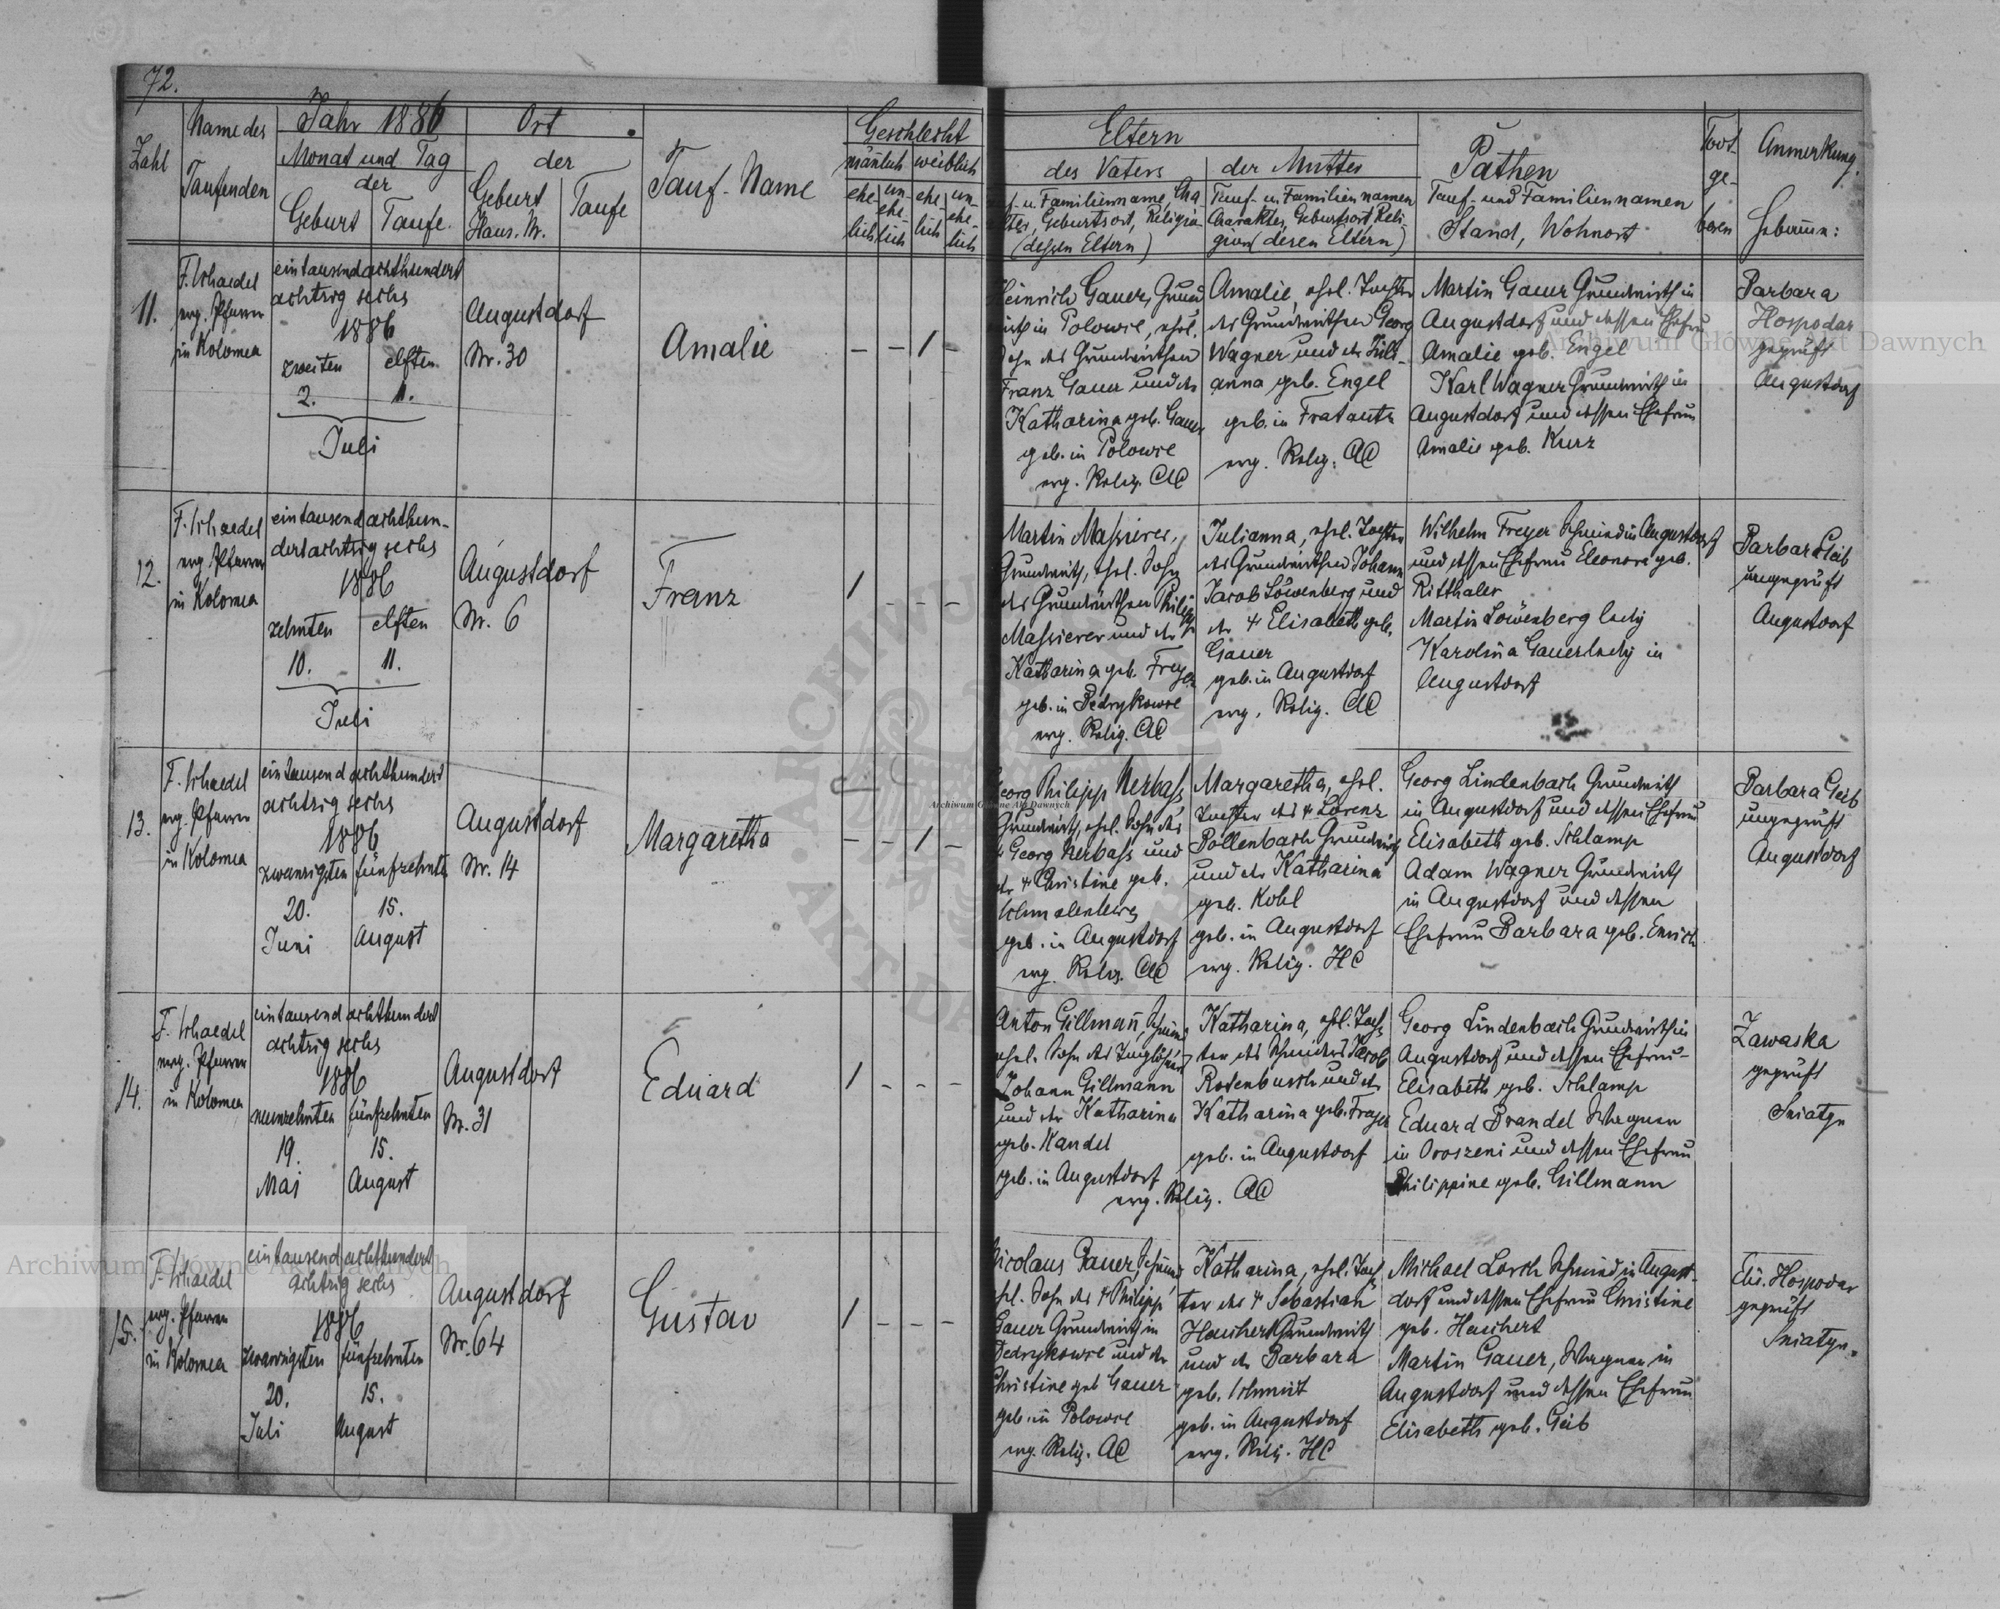 72.
Zahl
Name des
Taufenden
Jahr 1886
Monat und Tag
der
Geburt
Taufe
Ort
der
Geburt
Haus-Nr.
Taufe
Tauf-Name
Geschlecht
mänlich
weiblich
ehe-
lich
un-
ehe-
lich
ehe-
lich
un-
ehe-
lich
Eltern
des Vaters
der Mutter
u Familienname, Cha
Geburtsort, Religio
(dessen Eltern)
Tauf- u Familiennamen
Charakter, Geburtsort, Reli-
gion (deren Eltern)
Pathen
Tauf- und Familiennamen
Stand, Wohnort
Tod-
ge-
boren
Anmerkung.
Hebamme:
11.
F. Schaedel
evg. Pfarrer
in Kolomea
eintausendachthundert
achtzig sechs
1886
zweiten
elften
2.
11.
Juli
Augustdorf
Nr. 30
Amalie
– – / –
Heinrich Gauer, Grund
wirth in Polowce, ehel.
Sohn des Grundwirthen
Franz Gauer und der
Katharina geb. Gauer
geb. in Polowce
evg. Relig. AC
Amalie, ehel. Tochter
des Grundwirthen Georg
Wagner und der Juli-
anna geb. Engel
geb. in Fratautz
evg. Relig. AC
Martin Gauer Grundwirth in
Augustdorf und dessen Ehefrau
Amalie geb. Engel
Karl Wagner Grundwirth in
Augustdorf und dessen Ehefrau
Amalie geb. Kurz
Barbara
Hospodar
geprüft
Augustdorf
12.
F. Schaedel
evg. Pfarrer
in Kolomea
eintausend achthun-
dertachtzig sechs
1886
zehnten
elften
10.
11.
Juli
Augustdorf
Nr. 6
Franz
/ – – –
Martin Massierer,
Grundwirth, ehel. Sohn
des Grundwirthen Philipp
Massierer und der
Katharina geb. Freyer
geb. in Bedrykowce
evg. Relig. AC
Julianna, ehel. Tochter
des Grundwirthen Johann
Jacob Löwenberg und
der + Elisabeth geb.
Gauer
geb. in Augustdorf
evg. Relig. AC
Wilhelm Freyer Schmied in Augustdorf
und dessen Ehefrau Eleonore geb.
Ritthaler
Martin Löwenberg ledig
Karolina Gauer ledig in
Augustdorf
Barbara Geib
ungeprüft
Augustdorf
13.
F. Schaedel
evg. Pfarrer
in Kolomea
eintausend achthundert
achtzig sechs
1886
zwanzigsten
fünfzehnten
20.
15.
Juni
August
Augustdorf
Nr. 14
Margaretha
– – / –
Georg Philipp Nerbass
Grundwirth, ehel. Sohn des
+ Georg Nerbass und
der + Christine geb.
Schmalenberg
geb. in Augustdorf
evg. Relig. AC
Margaretha, ehel.
Tochter des + Lorenz
Pollenbach Grundwirth
und der Katharina
geb. Kohl
geb. in Augustdorf
evg. Relig. HC
Georg Lindenbach Grundwirth
in Augustdorf und dessen Ehefrau
Elisabeth geb. Schlamp
Adam Wagner Grundwirth
in Augustdorf und dessen
Ehefrau Barbara geb. Emrich
Barbara Geib
ungeprüft
Augustdorf
14.
F. Schaedel
evg. Pfarrer
in Kolomea
eintausend achthundert
achtzig sechs
1886
neunzehnten
fünfzehnten
19.
15.
Mai
August
Augustdorf
Nr. 31
Eduard
/ – – –
Anton Gillmann, Schmied
ehel. Sohn des
Johann Gillmann
und der Katharina
geb. Kandel
geb. in Augustdorf
evg. Relig. AC
Katharina, ehel. Toch-
ter des Schmiedes Jacob
Rosenbusch und der
Katharina geb. Frayer
geb. in Augustdorf
Georg Lindenbach Grundwirth in
Augustdorf und dessen Ehefrau
Elisabeth geb. Schlamp
Eduard Brandel Wagner
in Oroszeni und dessen Ehefrau
Philippine geb. Gillmann
Zawaska
geprüft
Sniatyn
15.
F. Schaedel
evg. Pfarrer
in Kolomea
eintausend achthundert
achtzig sechs
1886
zwanzigsten
fünfzehnten
20.
15.
Juli
August
Augustdorf
Nr. 64
Gustav
/ – – –
Nicolaus Gauer Schmied
ehel. Sohn des + Philipp
Gauer Grundwirth in
Bedrykowce und der
Christine geb Gauer
geb. in Polowce
evg. Relig. AC
Katharina, ehel. Toch
ter des + Sebastian
Heuchert Grundwirth
und der Barbara
geb. Schmidt
geb. in Augustdorf
evg. Relig. HC
Michael Lorch Schmied in August-
dorf und dessen Ehefrau Christine
geb. Heuchert
Martin Gauer, Wagner in
Augustdorf und dessen Ehefrau
Elisabeth geb. Geib
Elis. Hospodar
geprüft
Sniatyn.
Archiwum Główne Akt Dawnych
Archiwum Główne Akt Dawnych
Archiwum Główne Akt Dawnych